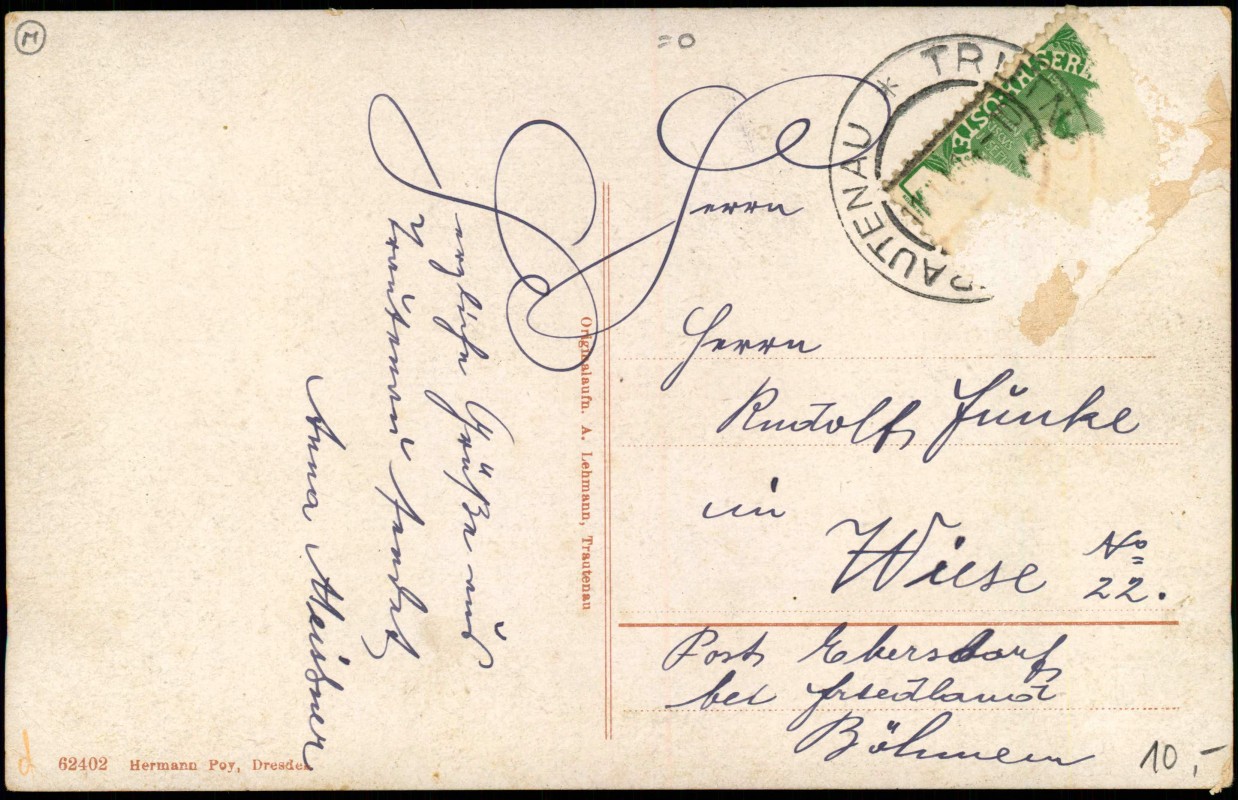 M
=0
TRAUTENAU * TR
KAISERL
POSTE
Herrn
Herrn
Rudolf Jünke
in
Wiese No
22.
Post Ebersdorf
bei Friedland
Böhmen
Herzliche Grüße aus
Trautenau sendet
Anna Meissner
Originalaufn. A. Lehmann, Trautenau
62402 Hermann Poy, Dresden
10,-